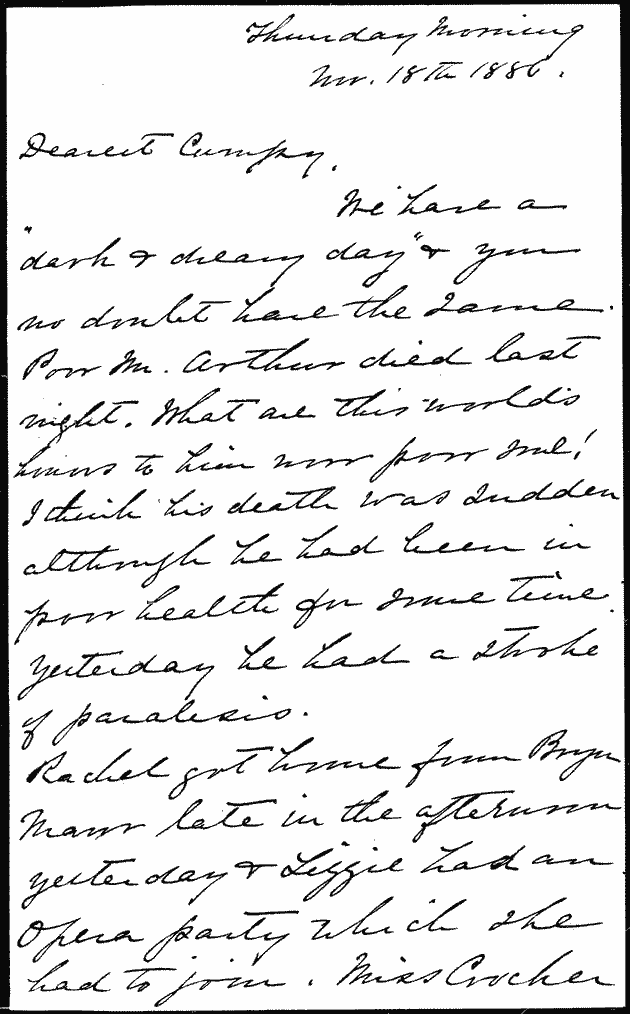 Thursday Morning
Nov. 18th 1886.
Dearest Cumpy,
We have a
"dark & dreary day" & you
no doubt have the same.
Poor Mr. Arthur died last
night. What are this world's
honors to him now poor soul!
I think his death was sudden
although he had been in
poor health for some time.
Yesterday he had a stroke
of paralesis.
Rachel got home from Bryn
Mawr late in the afternoon
yesterday & Lizzie had an
Opera party which she
had to join. Miss Crocker